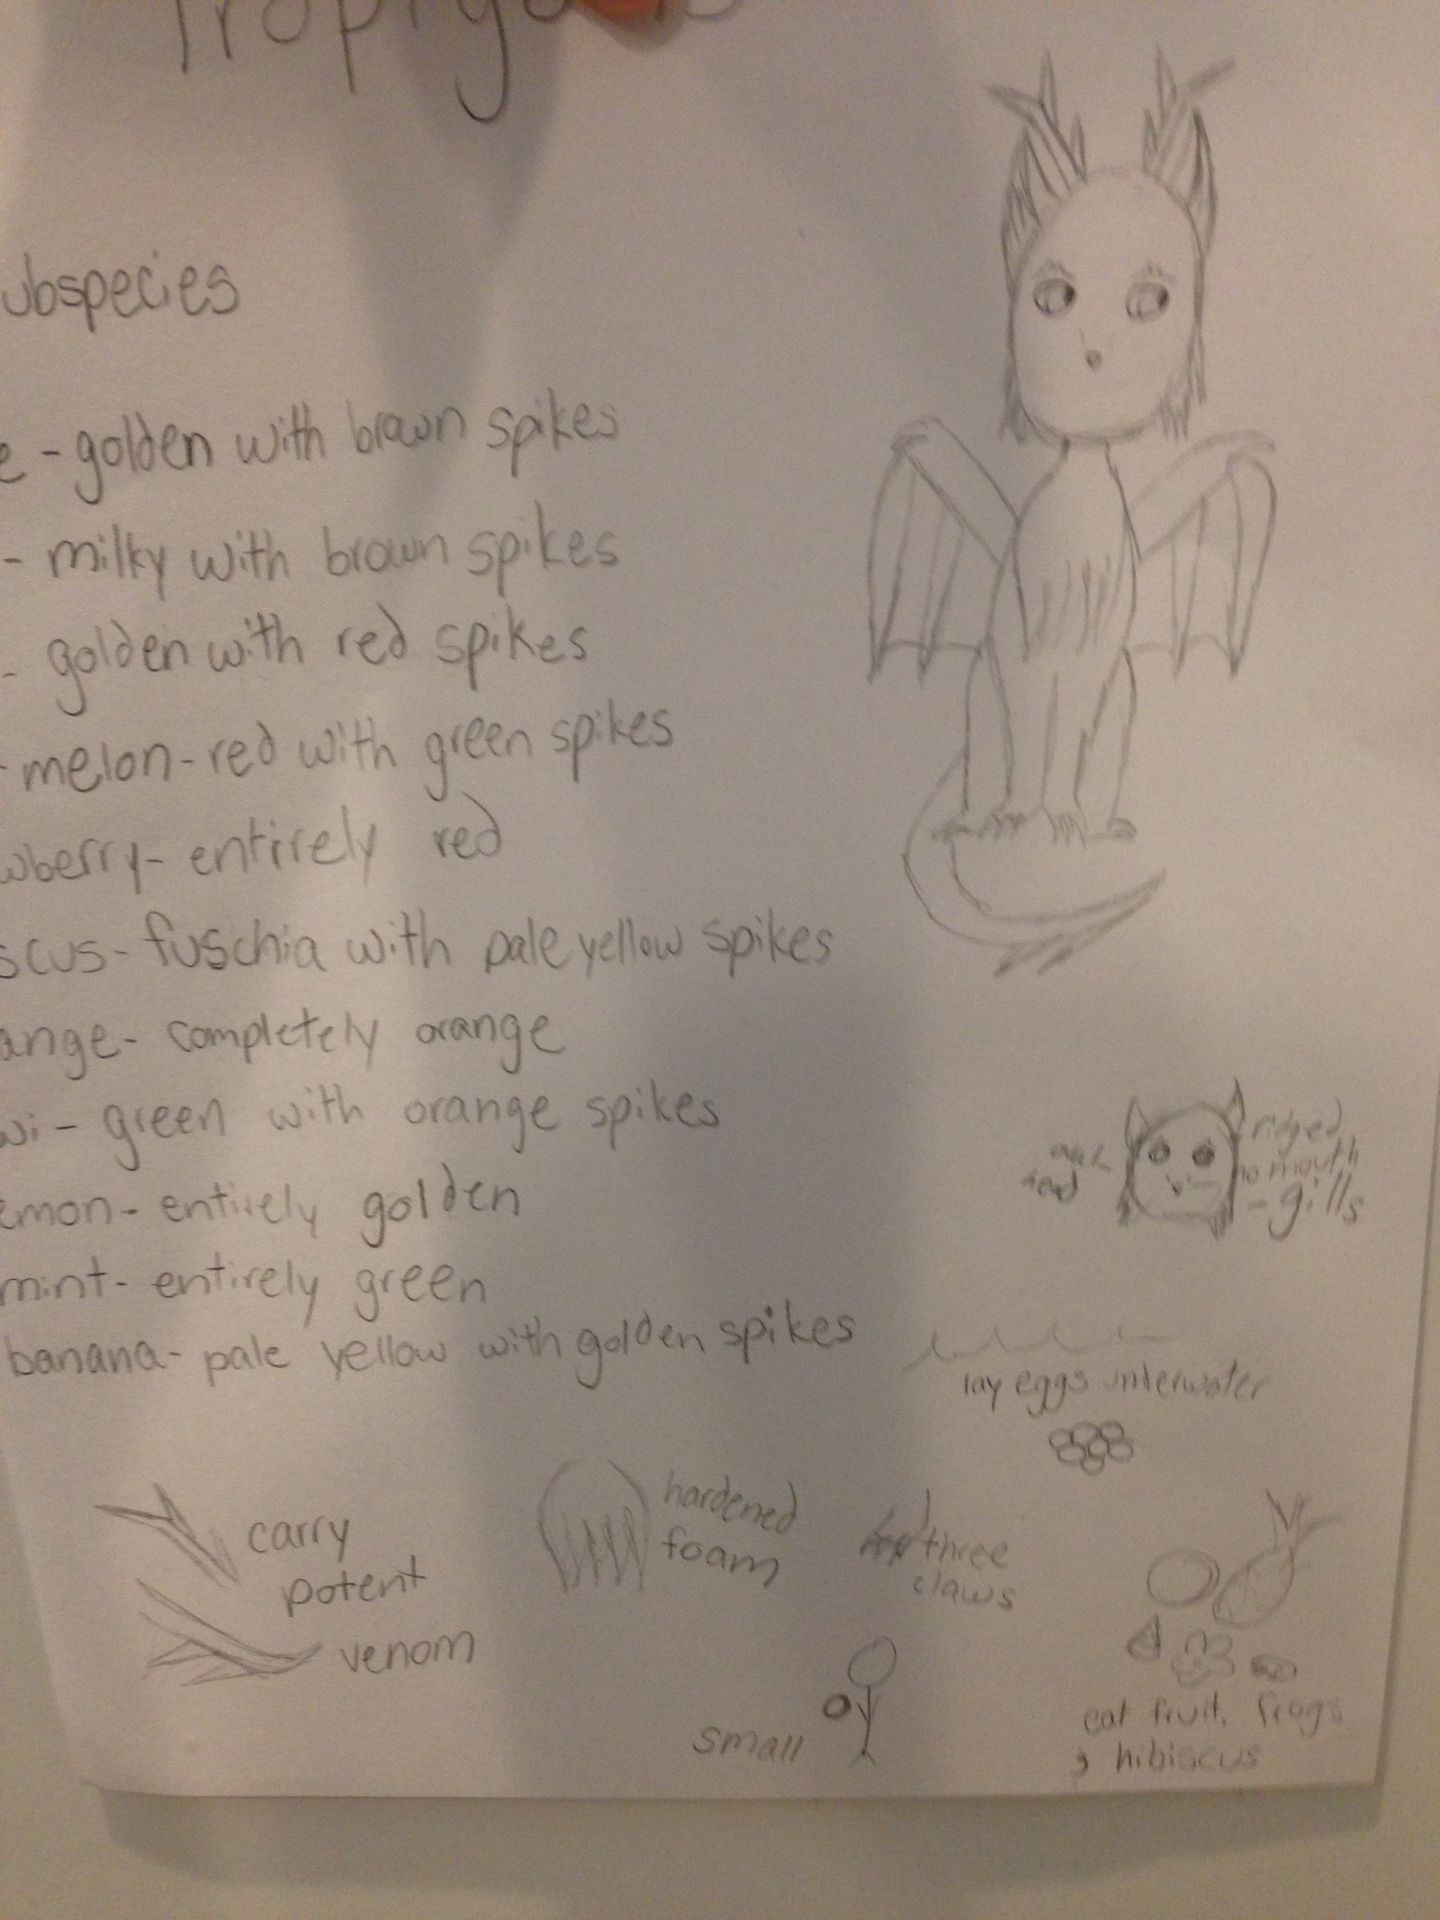 ubspecies
e - golden with brown spikes
- milky with brown spikes
- golden with red spikes
melon - red with green spikes
wberry - entirely red
scus - fuschia with pale yellow spikes
ange - completely orange
wi - green with orange spikes
emon - entirely golden
mint - entirely green
banana - pale yellow with golden spikes
ridged
no mouth
- gills
head
lay eggs underwater
carry
potent
venom
hardened
foam
three
claws
small
eat fruit, frogs
& hibiscus